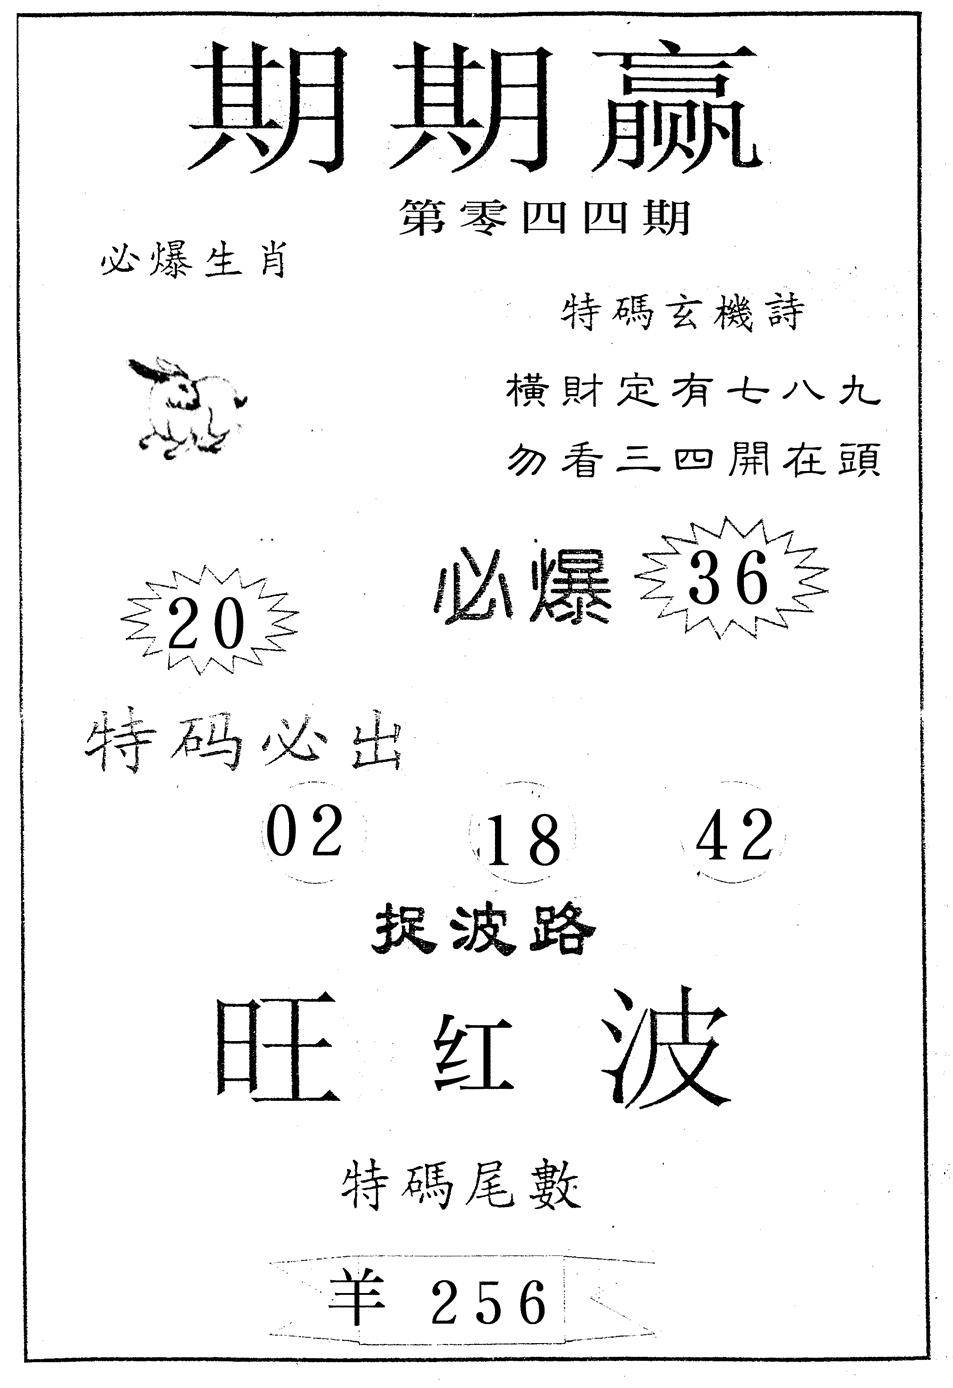 期期赢
第零四四期
必爆生肖
特碼玄機詩
橫財定有七八九
勿看三四開在頭
必爆 36
20
特码必出
02 18 42
捉波路
旺红波
特碼尾數
羊 256